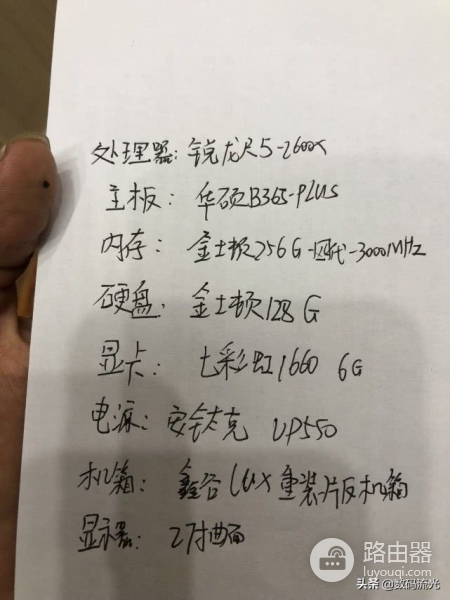 处理器：锐龙R5-2600x
主板：华硕B365-PLUS
内存：金士顿256G-四代-3000MHZ
硬盘：金士顿128G
显卡：七彩虹1660 6G
电源：安钛克 VP550
机箱：鑫谷LUX重装片反机箱
显示器：27寸曲面
路由器
luyouqi.com
头条 @数码流光